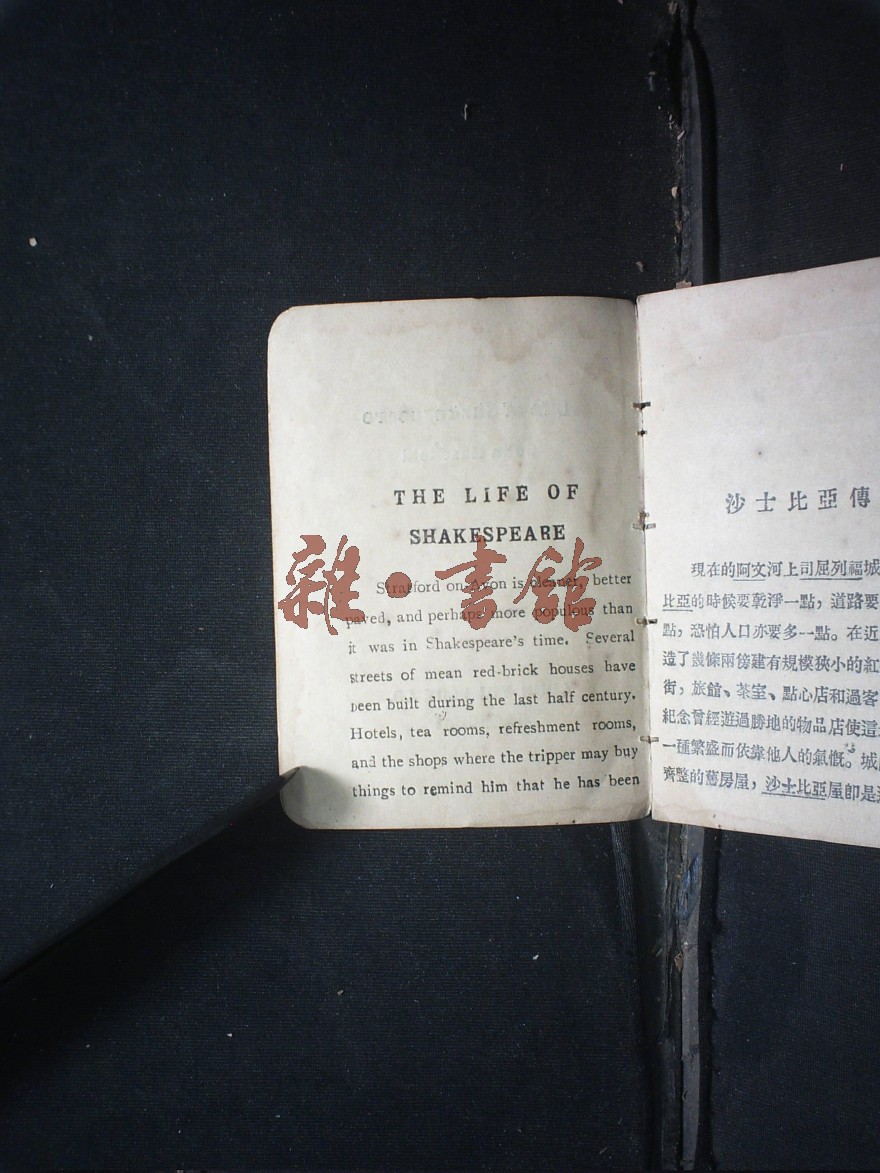 THE LIFE OF
SHAKESPEARE
Stratford on Avon is cleaner, better
paved, and perhaps more populous than
it was in Shakespeare's time. Several
streets of mean red-brick houses have
been built during the last half century.
Hotels, tea rooms, refreshment rooms,
and the shops where the tripper may buy
things to remind him that he has been
雜·書館
沙士比亞傳
現在的阿文河上司屈列福城
比亞的時候要乾淨一點，道路要
點，恐怕人口亦要多一點。在近
造了幾條兩傍建有規模狹小的紅
街，旅館、茶室、點心店和過客
紀念曾經遊過勝地的物品店使這
一種繁盛而依靠他人的氣慨。城
齊整的舊房屋，沙士比亞屋卽是